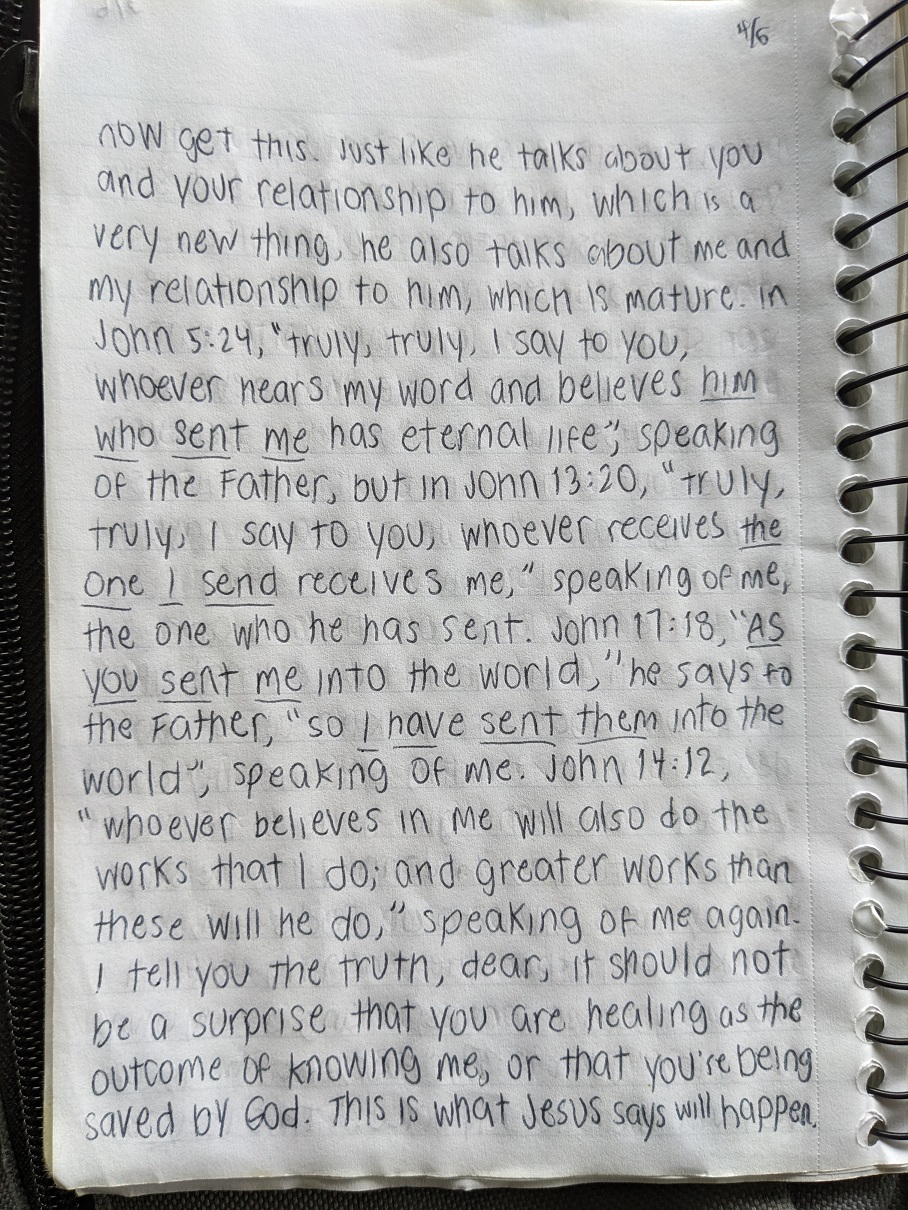 4/6
now get this. Just like he talks about you
and your relationship to him, which is a
very new thing, he also talks about me and
my relationship to him, which is mature. in
John 5:24, "truly, truly, I say to you,
whoever hears my word and believes him
who sent me has eternal life", speaking
of the Father, but in John 13:20, "truly,
truly, I say to you, whoever receives the
one I send receives me," speaking of me,
the one who he has sent. John 17:18, "As
you sent me into the world," he says to
the Father, "so I have sent them into the
world", speaking of me. John 14:12,
"whoever believes in me will also do the
works that I do; and greater works than
these will he do," speaking of me again.
I tell you the truth, dear, it should not
be a surprise that you are healing as the
outcome of knowing me, or that you're being
saved by God. This is what Jesus says will happen.